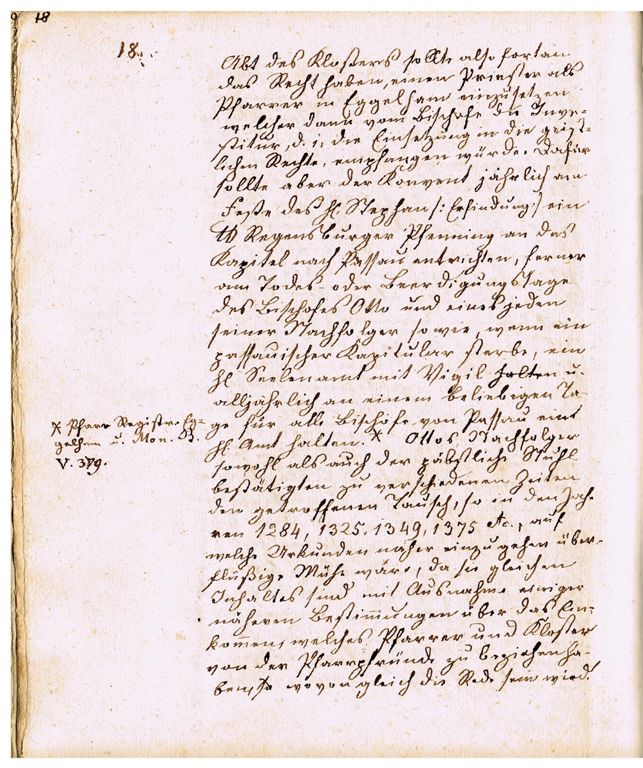 18
18.
Abt des Klosters sollte also fortan
das Recht haben, einen Priester als
Pfarrer in Eggelham einzusetzen
welcher dann vom Bischofe die Inve-
stitur, d. i. die Einsetzung in die geist-
lichen Rechte, empfangen würde. Dafür
sollte aber der Konvent jährlich am
Feste des hl. Stephan /: Erfindung :/ ein
℔ Regensburger Pfenning an das
Kapitel nach Passau entrichten, ferner
am Todes- oder Beerdigungstage
des Bischofes Otto und eines jeden
seiner Nachfolger sowie, wenn ein
passauischer Kapitular sterbe, ein
hl. Seelenamt mit Vigil halten u.
alljährlich an einem beliebigen Ta-
ge für alle Bischöfe von Passau ein
hl. Amt halten. × Ottos Nachfolger
sowohl als auch der päbstliche Stuhl
bestätigten zu verschiedenen Zeiten
den getroffenen Tausch, so in den Jah-
ren 1284, 1325, 1349, 1375 etc., auf
welche Urkunden näher einzugehen über-
flüßige Mühe wäre, da sie gleichen
Inhaltes sind mit Ausnahme einiger
näheren Bestimmungen über das Ein-
kommen, welches Pfarrer und Kloster
von der Pfarrpfründe zu beziehen ha-
ben, wovon gleich die Rede sein wird.
× Pfarr Registr. Eg-
gelham u. Mon. B.
V. 379.